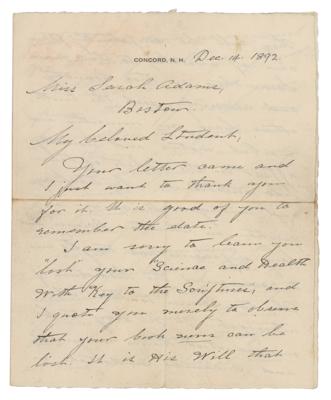 CONCORD, N. H. Dec 14. 1892
Miss Sarah Adams,
Boston
My beloved Student,
Your letter came and
I just want to thank you
for it. It is good of you to
remember the date.
I am sorry to learn you
"lost" your Science and Health
With Key to the Scriptures; and
I quote you merely to observe
that your book never can be
lost. It is His Will that